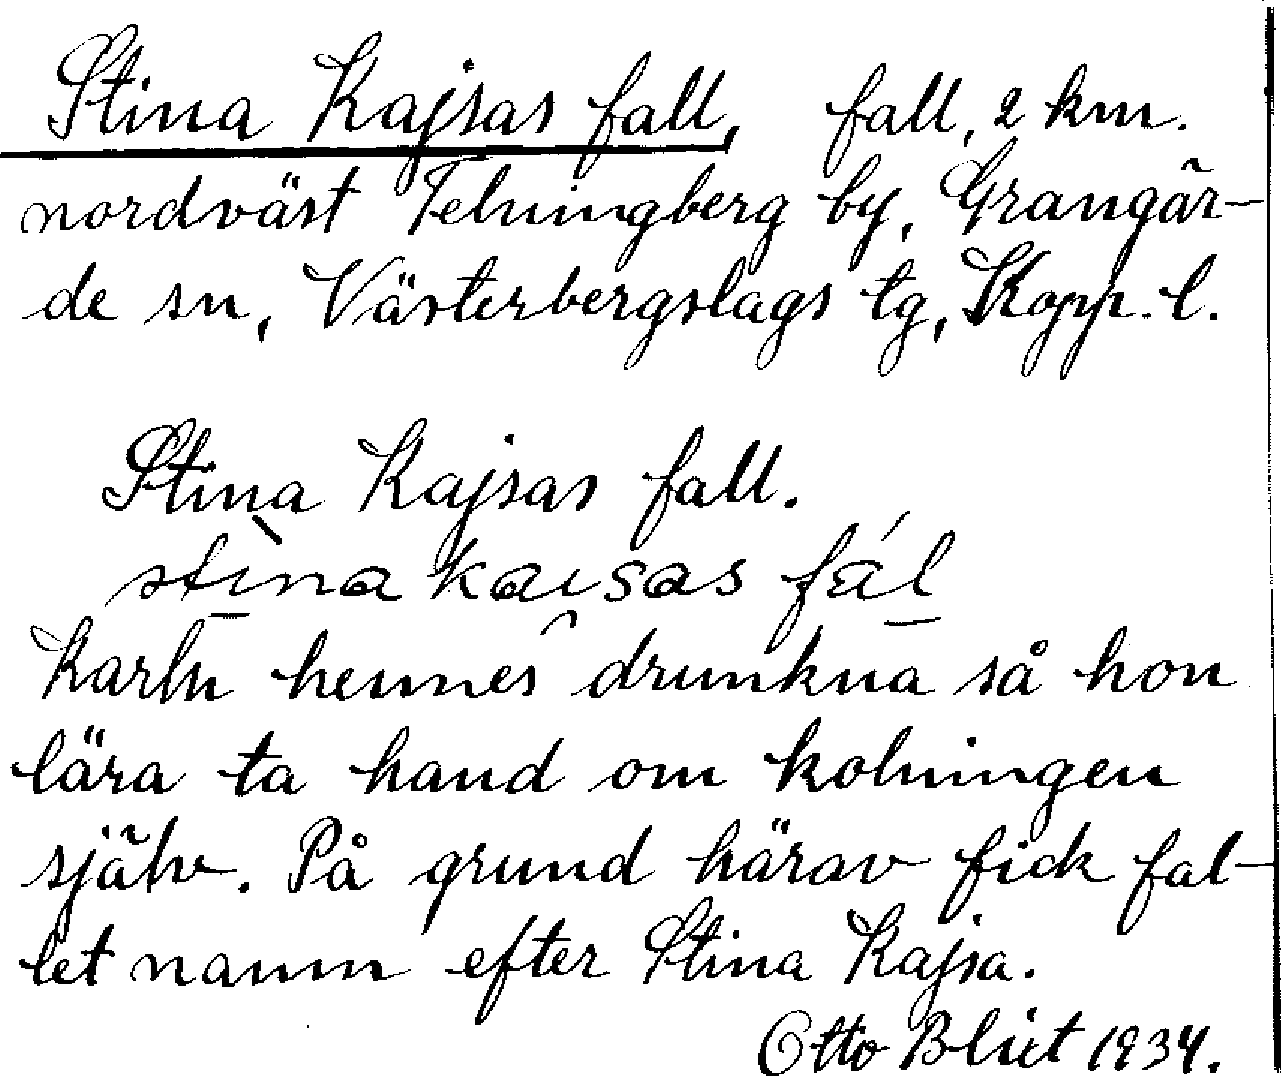 Stina Kajsas fall, fall, 2 km.
nordväst Telningberg by, Grangär-
de sn, Västerbergslags tg, Kopp. l.
Stina Kajsas fall.
stìna kaısas fál
Karln hennes drunkna så hon
lära ta hand om kolningen
själv. På grund härav fick fal-
let namn efter Stina Kajsa.
Otto Blixt 1934.